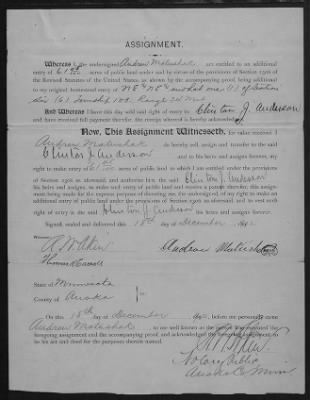 ASSIGNMENT.
Whereas I the undersigned Andrew Matushak am entitled to an additional
entry of acres of public land under and by virtue of the provisions of Section 2306 of
the Revised Statutes of the United States, as shown by the accompanying proof, being additional
to my original homestead
Range 24 West
And Whereas I have this day sold said right of entry to Clinton J. Anderson
and have received full payment therefor, the receipt whereof is hereby acknowledged:
Now, This Assignment Witnesseth, for value received I
Andrew Matushak do hereby sell, assign and transfer to the said
Clinton J. Anderson and to his heirs and assigns forever, my
right to make entry of acres of public land to which I am entitled under the provisions
of Section 2306 as aforesaid, and authorize him, the said Clinton J. Anderson
his heirs or assigns, to make said entry of public land and receive a patent therefor; this assign-
ment being made for the express purpose of divesting me, the undersigned, of my right to make an
additional entry of public lands under the provisions of Section 2306 as aforesaid, and to vest such
right of entry in the said Clinton J. Anderson his heirs and assigns forever.
Signed, sealed and delivered this 18th day of December
Witness:
Andrew Matushak
State of Minnesota
County of Anoka
On this 18th day of December before me personally came
Andrew Matushak to me well known as the person who executed the
foregoing assignment and the accompanying proof, and acknowledged the said assignment to
be his act and deed for the purposes therein named.
Notary Public
Anoka Co Minn